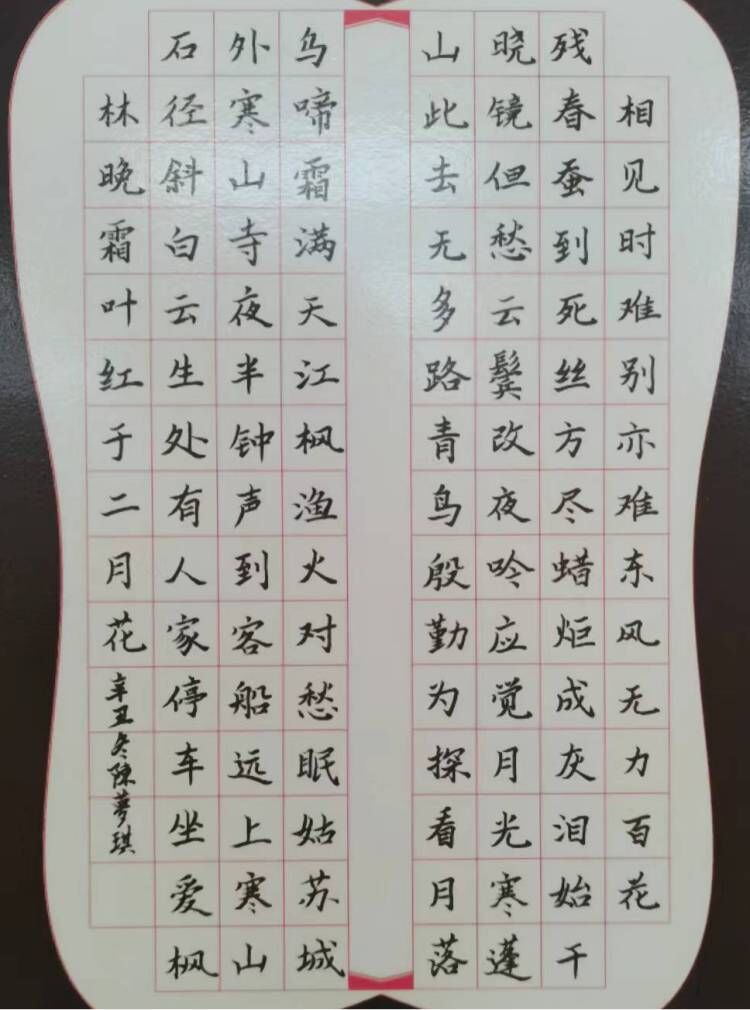 相见时难别亦难东风无力百花
残春蚕到死丝方尽蜡炬成灰泪始干
晓镜但愁云鬓改夜吟应觉月光寒蓬
山此去无多路青鸟殷勤为探看月落
乌啼霜满天江枫渔火对愁眠姑苏城
外寒山寺夜半钟声到客船远上寒山
石径斜白云生处有人家停车坐爱枫
林晚霜叶红于二月花
辛丑冬陈梦琪